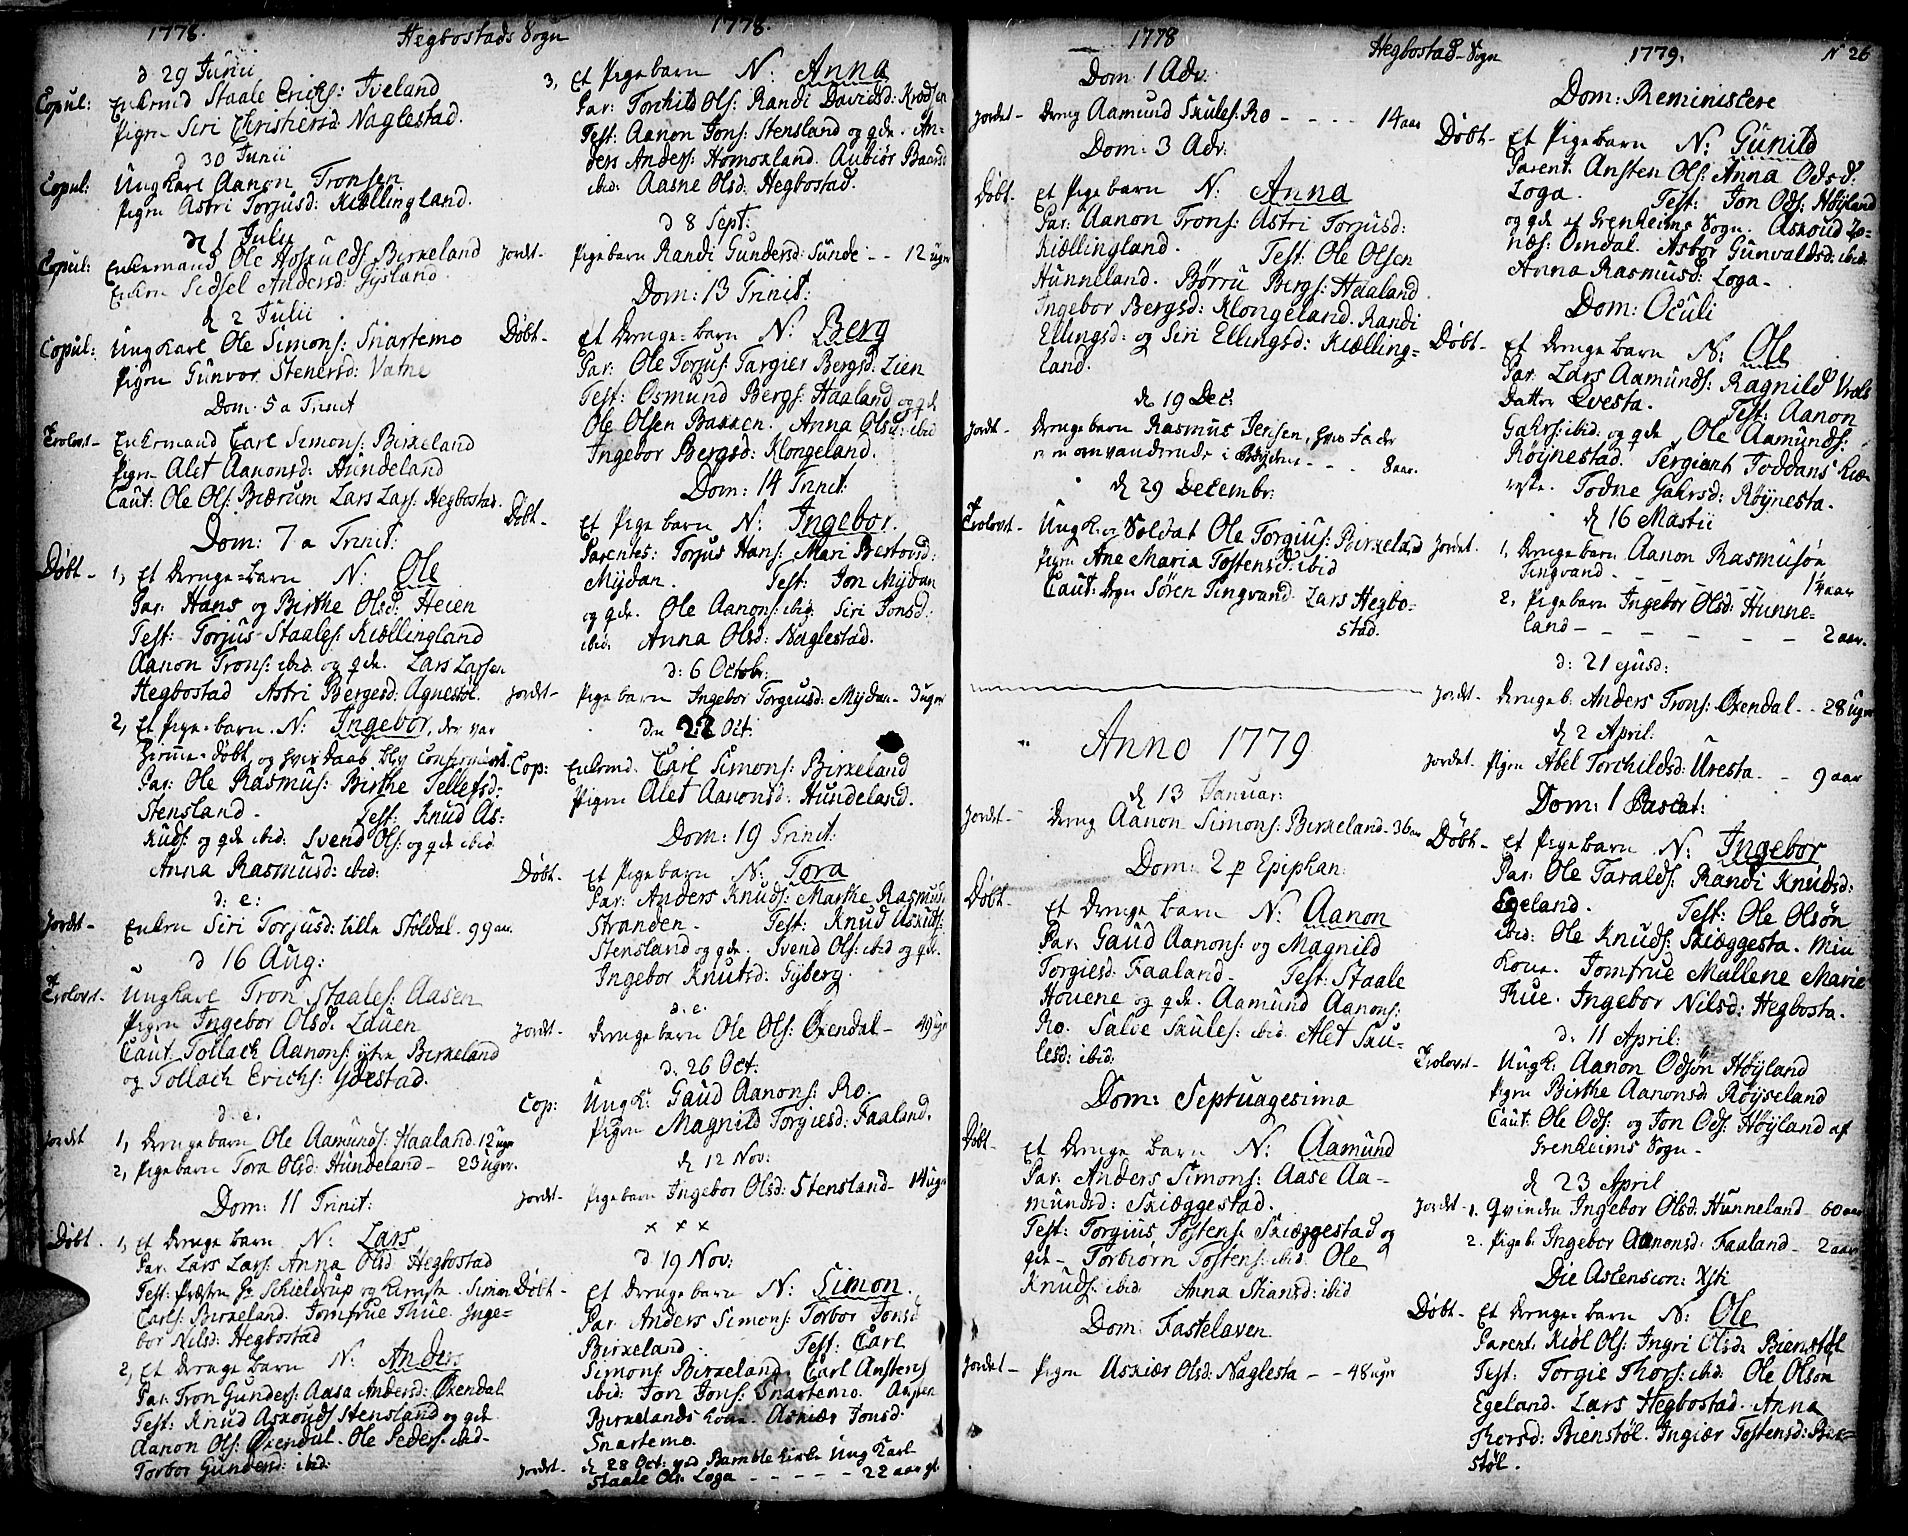 1778. Hegbostads Sogn 1778.
d 29 Junii
Copul: Enkemd Staale Erichs: Tveland
Pigen Siri Christhersd: Naglestad.
d 30 Junii
Copul: Ungkarl Aanon Tronsen
Pigen Astri Torjusd: Kiællingland.
d 1 Julii
Copul: Enkemand Ole Hoskulds: Birkeland
Enken Sidsel Andersd: Gysland.
d 2 Julii
Copul: Ungkarl Ole Simons: Snartemo
Pigen Gunvor Stenersd: Vatne
Dom. 5 a Trinit
Trolovt - Enkemand Carl Simons: Birkeland
Pigen Alet Aanonsd: Hundeland
Caut: Ole Ols: Biærum Lars Lars: Hegbostad.
Dom: 7 a Trinit:
Døbt - 1, Et Drenge-barn N: Ole
Par: Hans og Birthe Olsd: Heien
Test: Torjus Staales: Kiællingland
Aanon Trons: ibid og qde. Lars Larsen
Hegbostad Astri Bergesd: Agnestøl.
2, Et Pige-barn N: Ingebor, der var
hiemme-døbt, og hvis Daab blev Confirmeret.
Par: Ole Rasmus: Birthe Tellefsd:
Stensland. Test: Knud As-
kuds: og qde ibid: Svend Ols: og qde ibid
Anna Rasmusd: ibid:
d: e:
Jordet - Enken Siri Torjusd: lille Stoldal. 99 aar.
d 16 Aug:
Trolovt - Ungkarl Tron Staales: Aasen
Pigen Ingebor Olsd: Lauen
Caut Tollach Aanons: ytre Birkeland
og Tollach Erichs: Ydestad.
d. e.
Jordet 1, Drengebarn Ole Aamunds: Haaland. 12 uger
2, Pigebarn Tora Olsd: Hundeland - 23 uger.
Dom: 11 Trinit:
Døbt. 1, Et Drenge barn N: Lars
Par: Lars Lars: Anna Olsd: Hegbostad
Test: Præsten Hr Schieldrup og Simon
Carls: Birkeland. Jomfrue Thue. Inge-
bor Nilsd: Hegbostad
2, Et Drenge barn N: Anders
Par: Tron Gunders: Aasa Andersd: Øxendal
Test: Knud Askouds Stensland og qde
Aanon Ols: Øxendal. Ole Peders: ibid-
Torbor Gundersd: ibid:
3, Et Pigebarn N: Anna
Par: Torchild Ols: Randi Davidsd:
Test: Aanon Jons: Stensland og qde. An-
ders Anders: Homokland. Aubiør Baardsd
ibid: Aasne Olsd: Hegbostad.
d 8 Sept:
Jordt - Pigebarn Randi Gundersd: Sunde - - 12 uger
Dom: 13 Trinit:
Døbt - Et Drenge-barn N: Berg
Par: Ole Torjus: Targier Bergsd: Lien
Test: Osmund Bergs: Haaland og qde
Ole Olsen Bakken. Anna Olsd: ibid
Ingebor Bergsd: Klongeland.
Dom: 14 Trinit:
Døbt - Et Pige barn N: Ingebor.
Parentes: Torjus Hans: Mari Bestovsd:
Mydan. Test: Jon Mydan
og qde. Ole Aanons: ibid Siri Jonsd:
ibid: Anna Olsd: Naglestad.
d: 6 Octobr:
Jordet - Pige barn Ingebor Torgiusd: Mydan - 3 uger
den 22 Oct:
Cop: Enkemd. Carl Simons: Birkeland
Pigen Alet Aanonsd: Hundeland.
Dom: 19 Trinit:
Døbt. Et Pigebarn N: Tora
Par: Anders Knuds: Marthe Rasmusd:
Stranden - Test: Knud Askuds:
Stensland og qde. Svend Ols: ibid og qde.
Ingebor Knutsd: Gyberg.
d. e.
Jordt. Drengebarn Ole Ols: Øxendal - 49 ugr
d. 26 Oct:
Cop: Ungk: Gaud Aanons: Ro.
Pigen Magnild Torgiesd: Faaland.
d 12 Nov:
Jordet - Pigebarn Ingebor Olsd: Stensland - 14 ugr
x x x
d 19 Nov:
Døbt - Et Drengebarn N: Simon.
Par. Anders Simons: Torbor Jonsd
Birkeland. Test: Carl
Simons: Birkeland Carl Anstens
ibid: Jon Jons: Snartemo. Ansten
Birkelands kone. Askiær Jonsd:
Snartemo.
Jordet - d 28 Oct: ved Bamble kirke Ung Karl
Staale Ols: Loga - - - - - 22 aar gl.
1778 Hegbostad-Sogn 1779. N 26
Dom 1 Adv.
Jordet - Dreng Aamund Skules: Ro - - - - 14 aar
Dom: 3 Adv:
Døbt. Et Pigebarn N: Anna
Par: Aanon Trons: Astri Torjusd:
Kiællingland. Test: Ole Olsen
Hunneland. Børru Bergs: Haaland
Ingebor Bergsd: Klongeland. Randi
Ellingsd: og Siri Ellingsd: Kiælling-
land.
d 19 Dec:
Jordet - Drengebarn Rasmus Jensen, hvis Fader
er omvandrende i Bøyden - - 8 aar.
d 29 Decembr:
Trolovt - Ungk. og Soldat Ole Torgius: Birkeland
Pigen Ane Maria Tostensd: ibid
Caut: Søren Tingvand. Lars Hegbo-
stad.
Anno 1779
d 13 Januar:
Jordet - Dreng Aanon Simons: Birkeland - 36 aar
Dom: 2 p Epiphan:
Døbt - Et Drenge barn N: Aanon
Par: Gaud Aanons: og Magnild
Torgiesd: Faaland. Test: Staale
Houene og qde. Aamund Aanons:
Ro. Salve Skules: ibid Alet Sku-
lesd: ibid:
Dom: Septuagesima
Døbt - Et Drenge barn N: Aamund
Par: Anders Simons: Aase Aa-
mundsd: Skiæggestad.
Test: Torgius Tostens: Skiæggestad og
qde - Torbiorn Tostens: ibid: Ole
Knuds: ibid. Anna Thansd: ibid
Dom: Fastelaven
Jordet - Pigen Askiær Olsd: Naglesta - - 48 uger
Dom: Reminiscere
Døbt - Et Pigebarn N: Gunild
Parent. Ansten Ols: Anna Odsd:
Loga. Test: Jon Ods: Høyland
og qde af Grenheims Sogn. Askoud Jo-
næs: Omdal. Asbor Gunvaldsd: ibid:
Anna Rasmusd: Loga -
Dom: Oculi
Døbt - Et Drenge barn N: Ole
Par. Lars Aamunds: Ragnild Vrals
datter Qvesta. Test: Aanon
Gahrs: ibid: og qde Ole Aamunds:
Røynestad. Sergiant Joddans Kiæ-
reste. Todne Gahrsd: Røynesta.
d 16 Martii
Jordet. 1, Drengebarn Aanon Rasmusøn
Tingvand - - - - - 14 aar
2, Pigebarn Ingebor Olsd: Hunne-
land - - - - - - 2 aar.
d: 21 ejusd:
Jordet - Drengeb: Anders Trons: Øxendal - - 28 uger
d 2 April:
Jordet. Pigen Abel Torchildsd: Uresta - - 9 aar
Dom: 1 Pascat:
Døbt - Et Pigebarn N: Ingebor
Par: Ole Taralds: Randi Knudsd:
Egeland. Test: Ole Olsøn
ibid: Ole Knuds: Skiæggesta. Min
kone. Jomfrue Mallene Marie
Thue. Ingebor Nilsd: Hegbosta.
d. 11 April:
Trolovt - Ungk. Aanon Odsøn Høyland
Pigen Birthe Aanonsd: Røyseland
Caut: Ole Ods: og Jon Ods: Høyland af
Grenheims Sogn -
d 23 April
Jordet - 1. Qvinden Ingebor Olsd: Hunneland - 60 aar
2. Pigeb: Ingebor Aanonsd: Faaland - 2 aar
Die Ascension: Xsti
Døbt - Et Drenge-barn N: Ole
Parent. Kiøl Ols: Ingri Olsd: Bienstøl
Test: Torgie Thors: ibid: Ole Olsøn
Egeland. Lars Hegbostad. Anna
Thorsd: Bienstøl. Ingiær Tostensd: Bien-
støl.